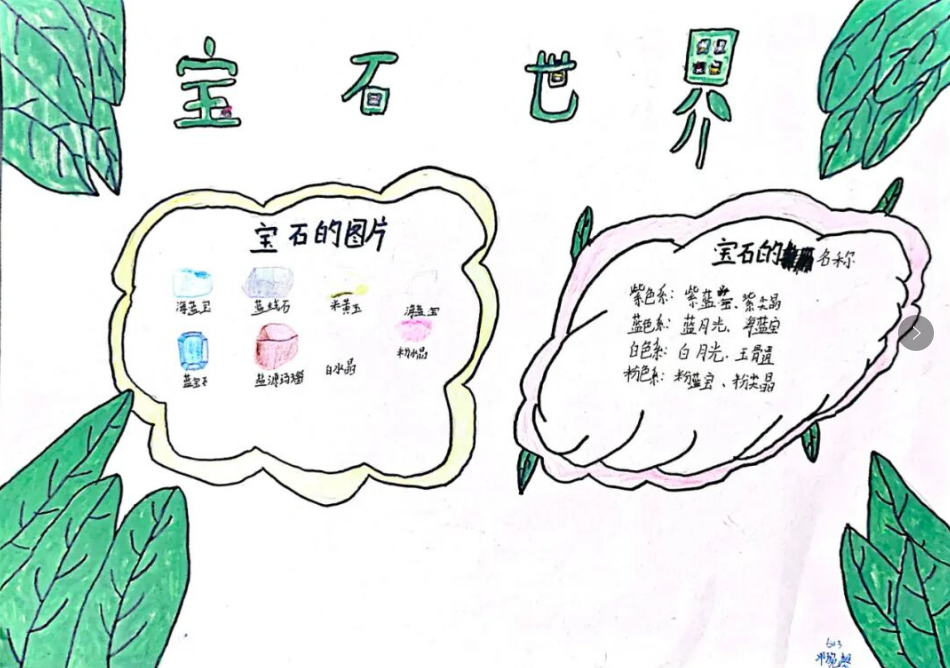 宝石世界
宝石的图片
海蓝宝 蓝线石 米黄玉 海蓝宝
蓝宝石 盐源玛瑙 白水晶 粉水晶
宝石的名称
紫色系：紫蓝宝、紫尖晶
蓝色系：蓝月光、海蓝宝
白色系：白月光、玉骨遥
粉色系：粉蓝宝、粉尖晶